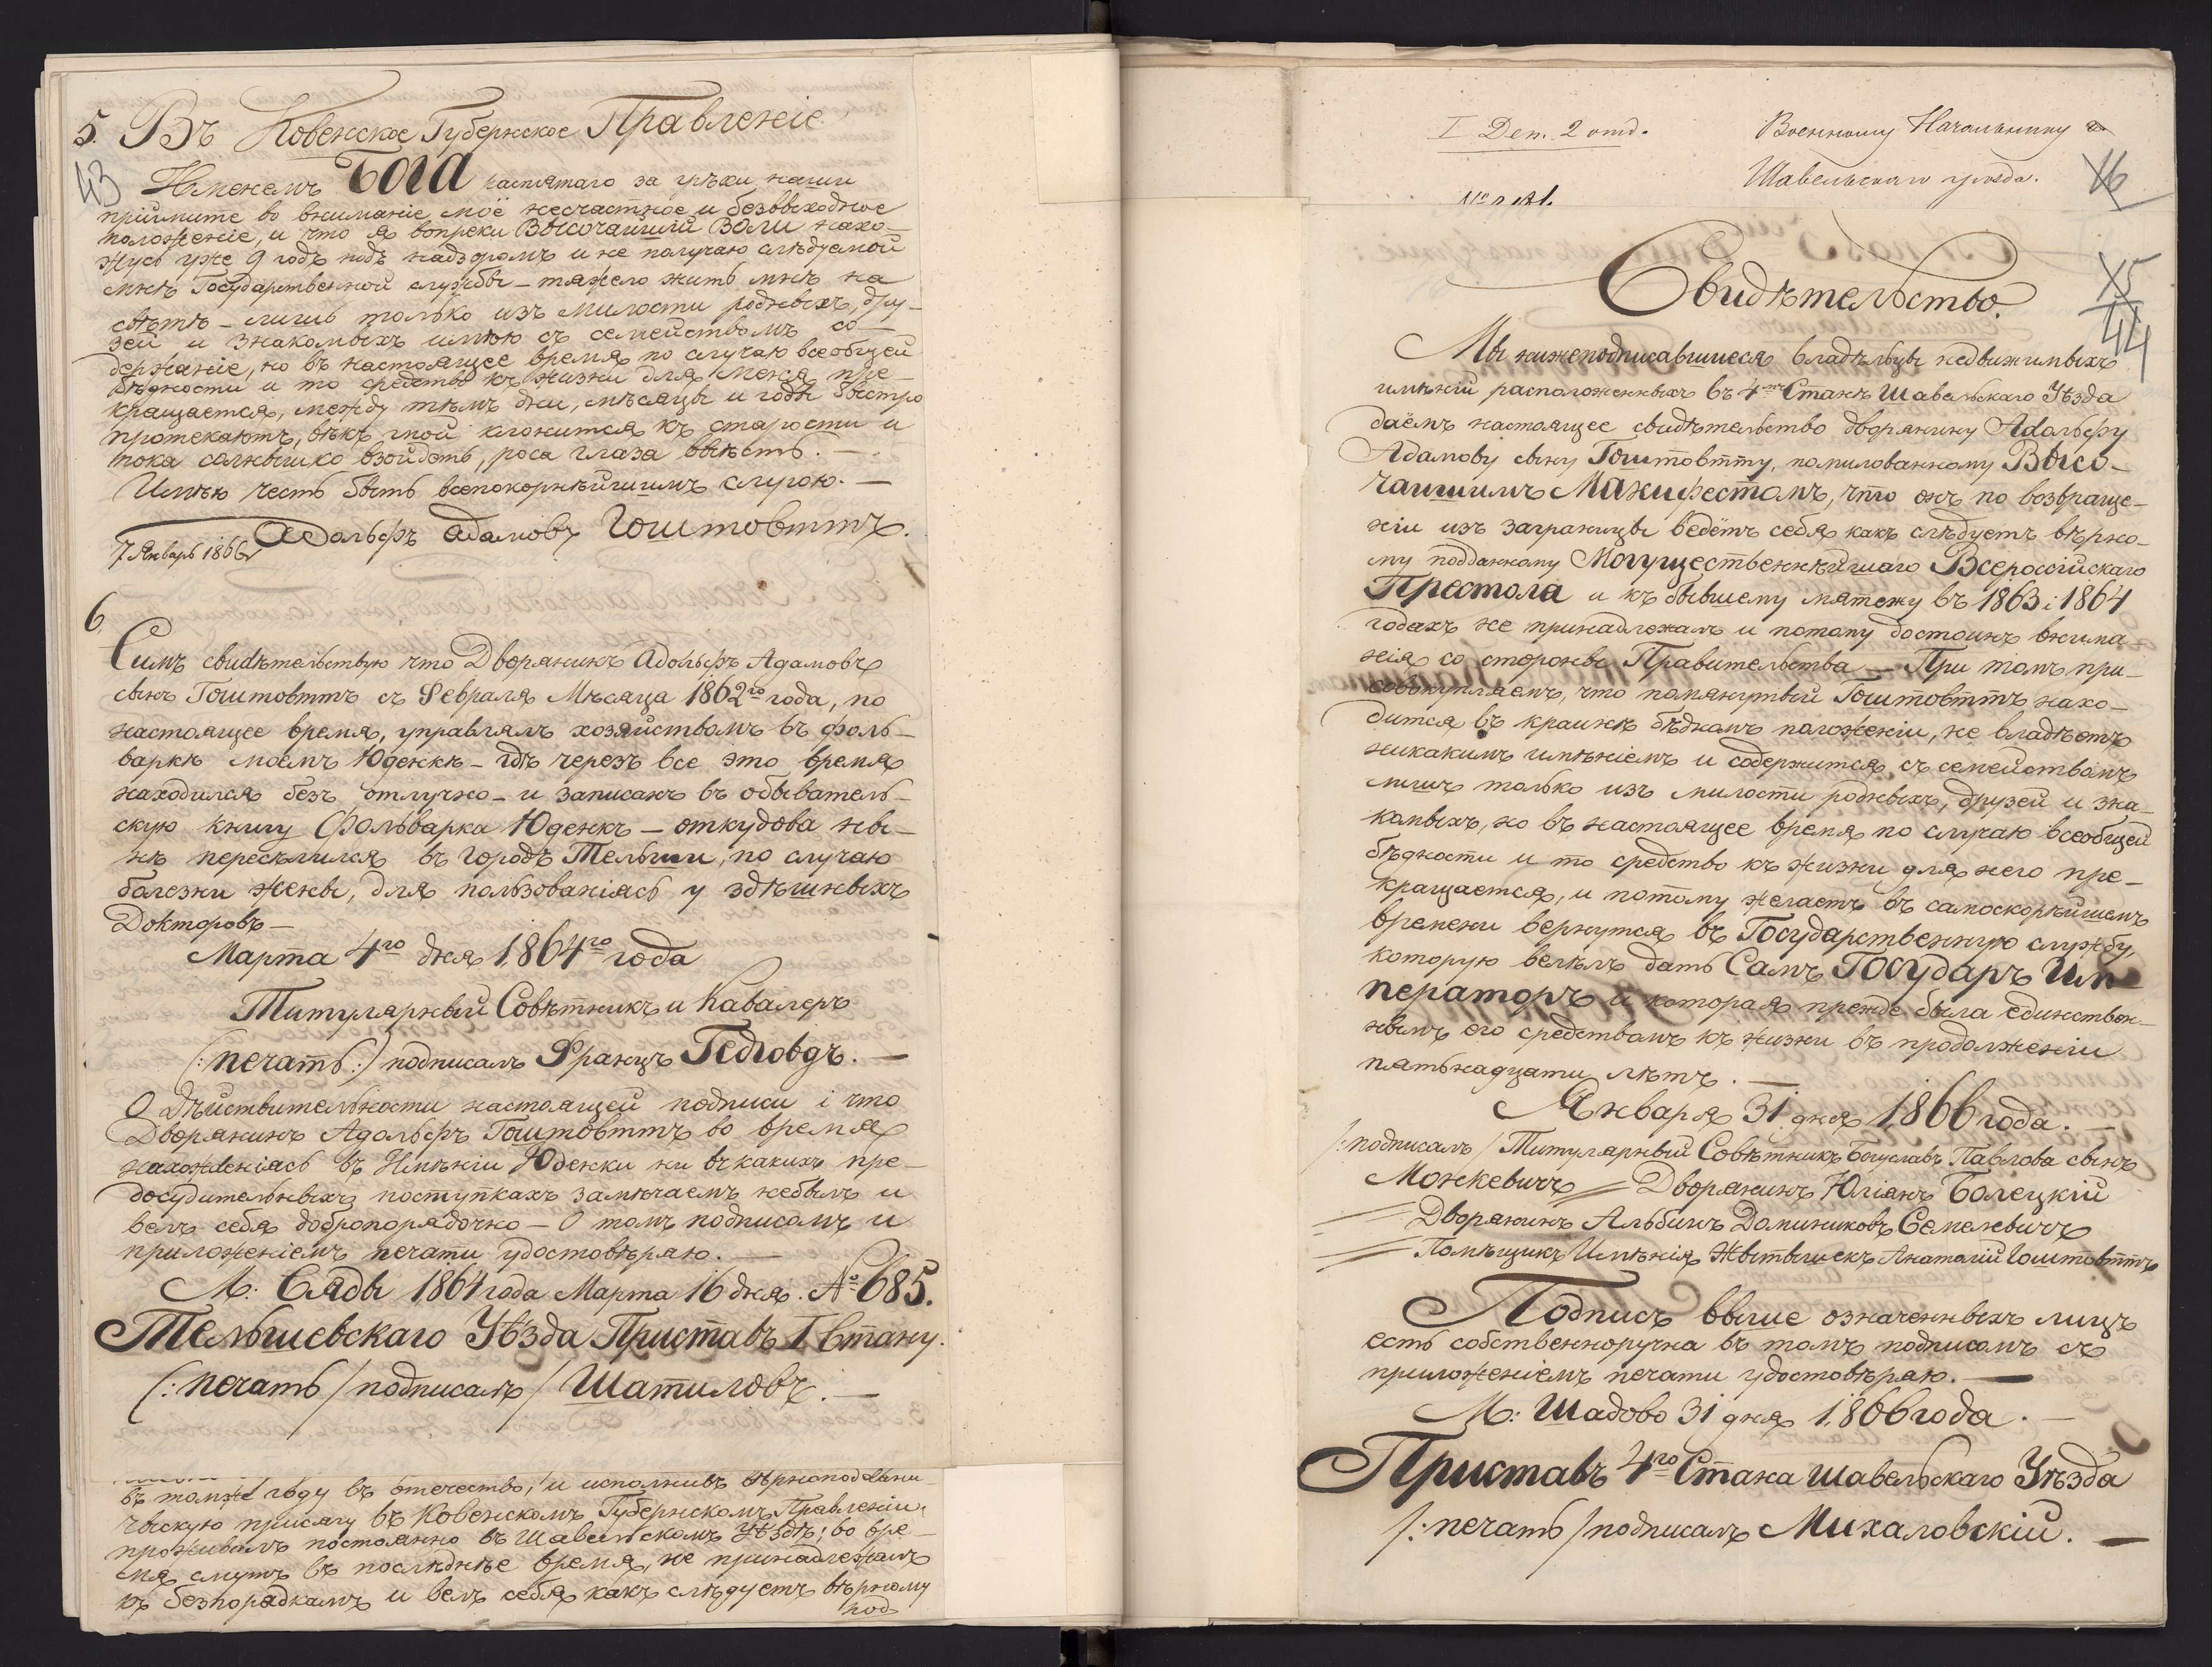 5. Въ Ковенское Губернское Правленіе
43
Именемъ Бога распятаго за грѣхи наши
пріймите во вниманіе моё несчастное и безвыходное
положеніе, и что я вопреки Высочайшій Воли нахо-
жусь уже 9 годъ подъ надзоромъ и не получаю слѣдуемой
мнѣ Государственной службы – тяжело жить мнѣ на
свѣтѣ – лишь только изъ милости родныхъ, дру-
зей и знакомыхъ имѣю съ семействомъ со-
держаніе, но въ настоящее время по случаю всеобщей
бѣдности и то средство къ жизни для меня пре-
кращается, между тѣмъ дни, мѣсяцы и годы быстро
протекаютъ, вѣкъ мой клонится къ старости и
пока солнышко взойдетъ, роса глаза выѣсть. —
Имѣю честь быть всепокорнѣйшимъ слугою. —
Адольфъ Адамовъ Гоштовттъ.
7 Январь 1866г
6.
Симъ свидѣтельствую что Дворянинъ Адольфъ Адамовъ
сынъ Гоштовттъ съ Февраля Мѣсяца 1862го года, по
настоящее время, управлялъ хозяйствомъ въ фоль-
варкѣ моемъ Юденкѣ – гдѣ черезъ все это время
находился безъ отлучно – и записанъ въ обыватель-
скую книгу Фольварка Юденкъ – откудова ны-
нѣ переселился въ городъ Тельши, по случаю
болезни жены, для пользованіясь у здѣшныхъ
Докторовъ –
Марта 4го дня 1864го года
Титулярный Совѣтникъ и Кавалеръ
(: печать :) подписалъ Францъ Гедговдъ. —
О дѣйствительности настоящей подписи і что
Дворянинъ Адольфъ Гоштовттъ во время
нахожденіясь въ Имѣніи Юденки ни въ какихъ пре-
досудительныхъ поступкахъ замѣчаемъ небылъ и
велъ себя добропорядочно – О томъ подписомъ и
приложеніемъ печати удостовѣряю. —
М: Сяды 1864 года Марта 16 дня. № 685.
Тельшевскаго Уѣзда Приставъ I Стану.
(: печать / подписалъ / Шатиловъ. —
въ томже году въ отечество, и исполнивъ вѣрноподдани-
ческую присягу въ Ковенскомъ Губернскомъ Правленіи,
проживалъ постоянно въ Шавельскомъ Уѣздѣ; во вре-
мя смутъ въ послѣднѣе время, не принадлежалъ
къ безпорядкамъ и велъ себя какъ слѣдуетъ вѣрному
под
I Деп. 2 отд.
Военному Начальнику
Шавельскаго уѣзда.
16
Свидѣтельство.
15
44
Мы нижеподписавшиеся владѣльцы недвижимыхъ
имѣній расположенныхъ въ 4мъ Станѣ Шавельскаго Уѣзда
даёмъ настоящее свидѣтельство дворянину Адольфу
Адамову сыну Гоштовтту, помилованному Высо-
чайшимъ Манифестомъ, что онъ по возвраще-
ніи изъ заграницы ведётъ себя какъ слѣдуетъ вѣрно-
му подданному Могущественнѣйшаго Всероссійскаго
Престола и къ бывшему мятежу въ 1863 і 1864
годахъ не принадлежалъ и потому достоинъ внима-
нія со стороны Правительства – При томъ при-
совокупляемъ, что помянутый Гоштовттъ нахо-
дится въ крайнѣ бѣдномъ положеніи, не владѣетъ
никакимъ имѣніемъ и содержится съ семействомъ
лишъ только изъ милости родныхъ, друзей и зна-
комыхъ, но въ настоящее время по случаю всеобщей
бѣдности и то средство къ жизни для него пре-
кращается, и потому желаетъ въ самоскорѣйшемъ
времени вернутся въ Государственную службу,
которую велѣлъ дать Самъ Государъ Им-
ператоръ и которая прежде была единствен-
нымъ его средствомъ къ жизни въ продолженіи
пятьнадцати лѣтъ. —
Января 31 дня 1866 года. —
/: подписалъ / Титулярный Совѣтникъ Богуславъ Павлова сынъ
Монкевичъ = Дворянинъ Юліанъ Болецкій
= Дворянинъ Альбинъ Доминиковъ Семеневичъ
= Помѣщикъ Имѣнія Жвтвишекъ Анатолій Гоштовттъ
Подписъ выше означенныхъ лицъ
есть собственноручна въ томъ подписомъ съ
приложеніемъ печати удостовѣряю. —
М: Шадово 31 дня 1866 года. —
Приставъ 4го Стана Шавельскаго Уѣзда
/: печать / подписалъ Михаловскій. —